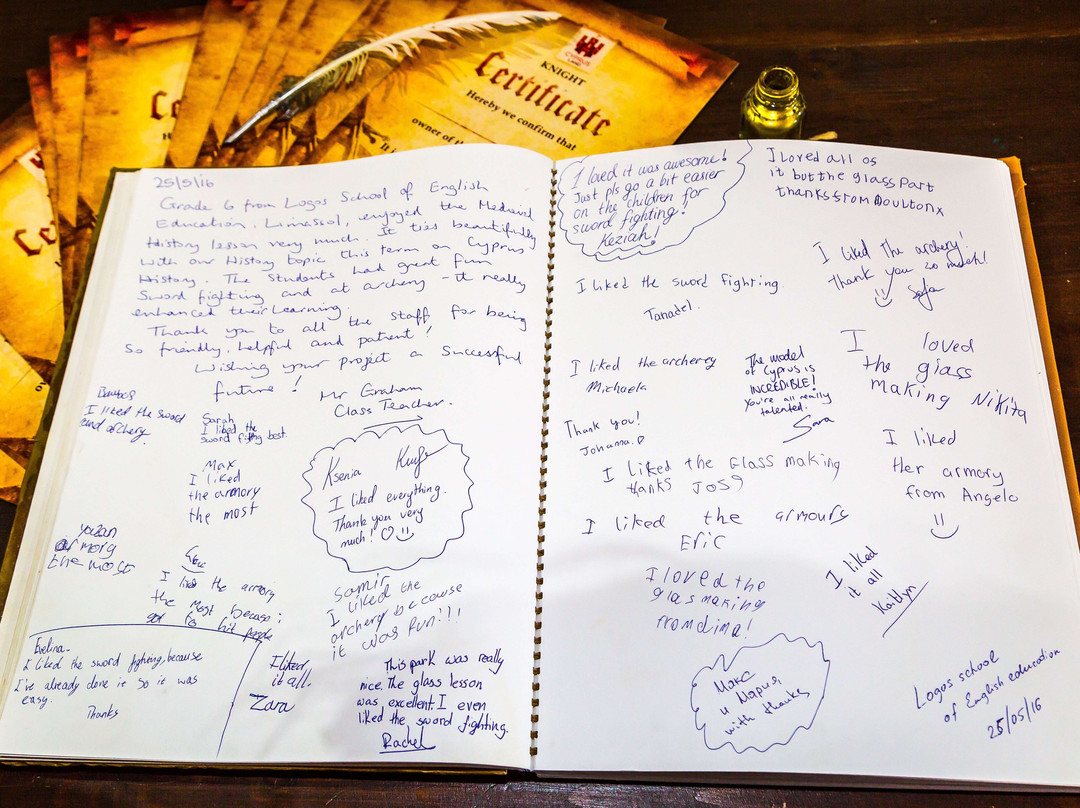 KNIGHT
Certificate
Hereby we confirm that
owner of
It
25/5/16
Grade 6 from Logos School of English
Education, Limassol, enjoyed the Medieval
History lesson very much. It ties beautifully
with our History topic this term on Cyprus
History. The students had great fun
Sword fighting and at archery - it really
enhanced their learning.
Thank you to all the staff for being
so friendly, helpful and patient!
Wishing your project a successful
future!
Mr Graham
Class Teacher.
I liked the sword
and archery.
Sarah
I liked the
sword best.
Max
I liked
the armory
the most
Ksenia
I liked everything.
Thank you very
much! ♡☺
Yazan
armorg
the most
I like the armory
the most because i
got to hit people
samir
I liked the
archery because
it was fun!!!
Evelina.
I liked the sword fighting, because
I've already done it so it was
easy.
Thanks
I liked
it all.
Zara
This park was really
nice. The glass lesson
was excellent. I even
liked the sword fighting.
Rachel
I loved it was awesome!
Just pls go a bit easier
on the children for
sword fighting!
Keziah!
I loved all of
it but the glass part
thanks from Doulton x
I liked the sword fighting.
Tanadel.
I liked The archery!
Thank you so much!
☺
I liked the archery
Michaela
The model
of Cyprus is
INCREDIBLE!
You're all really
talented.
Sara
I loved
the glass
making Nikita
Thank you!
Johanna. ♡
I liked the Glass making
thanks
I liked
Her armory
from Angelo
☺
I liked the armoury
Eric
I loved the
glasmaking
from dima!
I liked
it all
Kaitlyn
Макс
и Мария
with thanks
Logos school
of English education
25/05/16